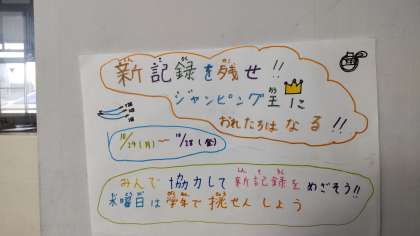 新記録を残せ!!
ジャンピング王に
おれたちはなる!!
10/24(月)〜10/28(金)
みんで協力して新記録をめざそう!!
水曜日は学年で挑せんしよう